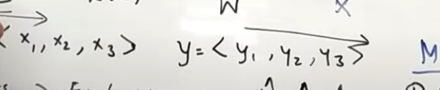 W X
x₁, x₂, x₃ > y = < y₁, y₂, y₃ > M